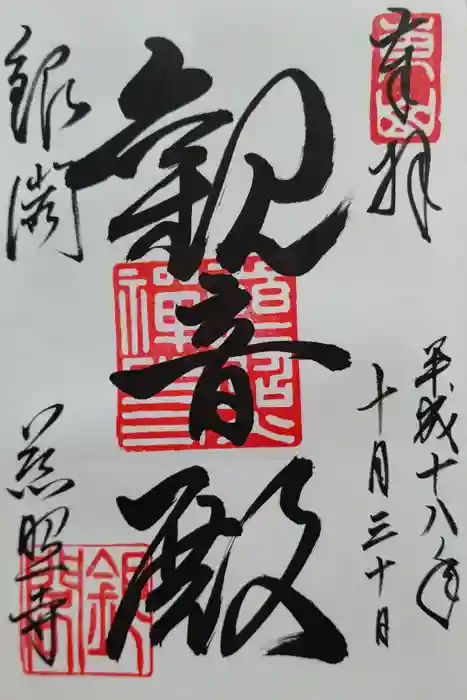 奉拝
平成十八年
十月三十日
観音殿
銀閣
慈照寺
東山
銀閣